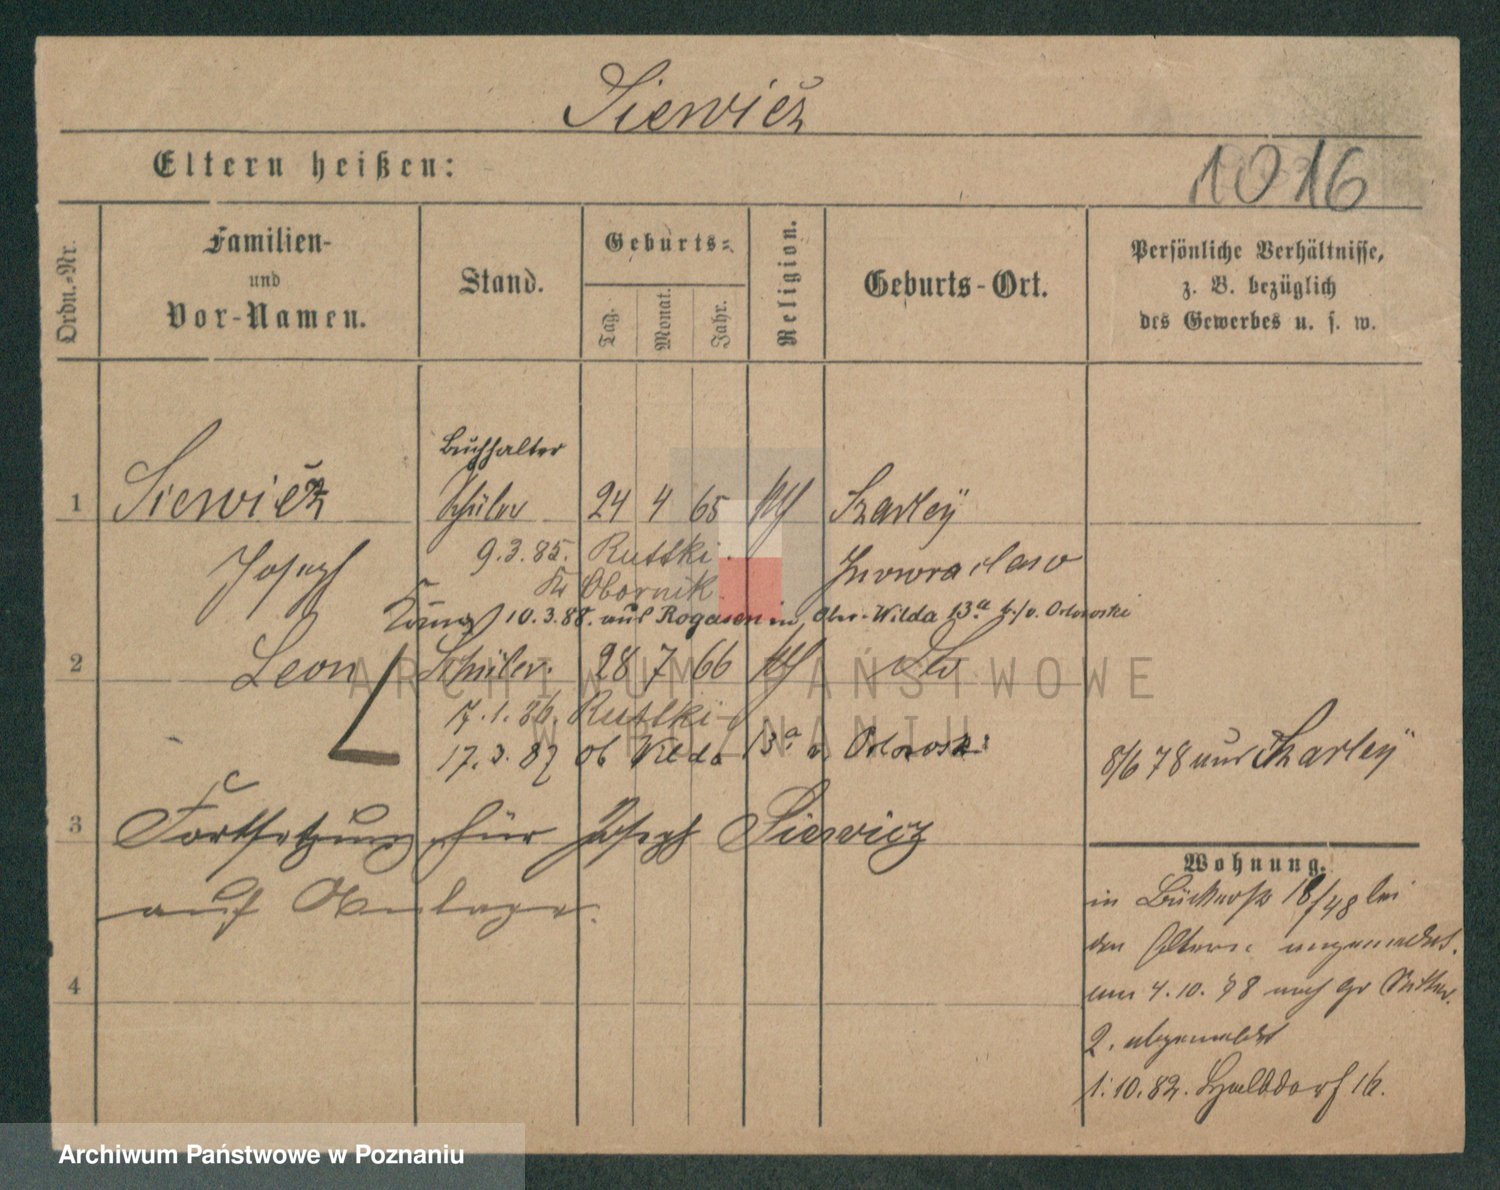 Siewicz
Eltern heißen:
1016
Ordn.-Nr.
Familien-
und
Vor-Namen.
Stand.
Geburts-
Tag.
Monat.
Jahr.
Religion.
Geburts-Ort.
Persönliche Verhältnisse,
z. B. bezüglich
des Gewerbes u. s. w.
Buchhalter
1 Siewicz Schüler 24 4 65 kth Szarley
9.3.85. Ruttki.
Joseph Inowraclaw
Kr Obornik
10.3.88. aus Rogasen in Ober-Wilda 13a b/v. Orlowski
2 Leon Schüler. 28 7 66 kth do
17.1.86. Ruttki
17.3.87 Ob Wilda 13a v. Orlowski
8/6 78 aus Szarley
3 Fortsetzung für Joseph Siewicz
auf Anlage.
4
Wohnung.
in 18/48 bei
den Eltern angemeldet.
am 4.10.78 nach gr Ritter.
2. abgemeldet
1.10.82. Halbdorf 16.
ARCHIWUM PAŃSTWOWE
W POZNANIU
Archiwum Państwowe w Poznaniu